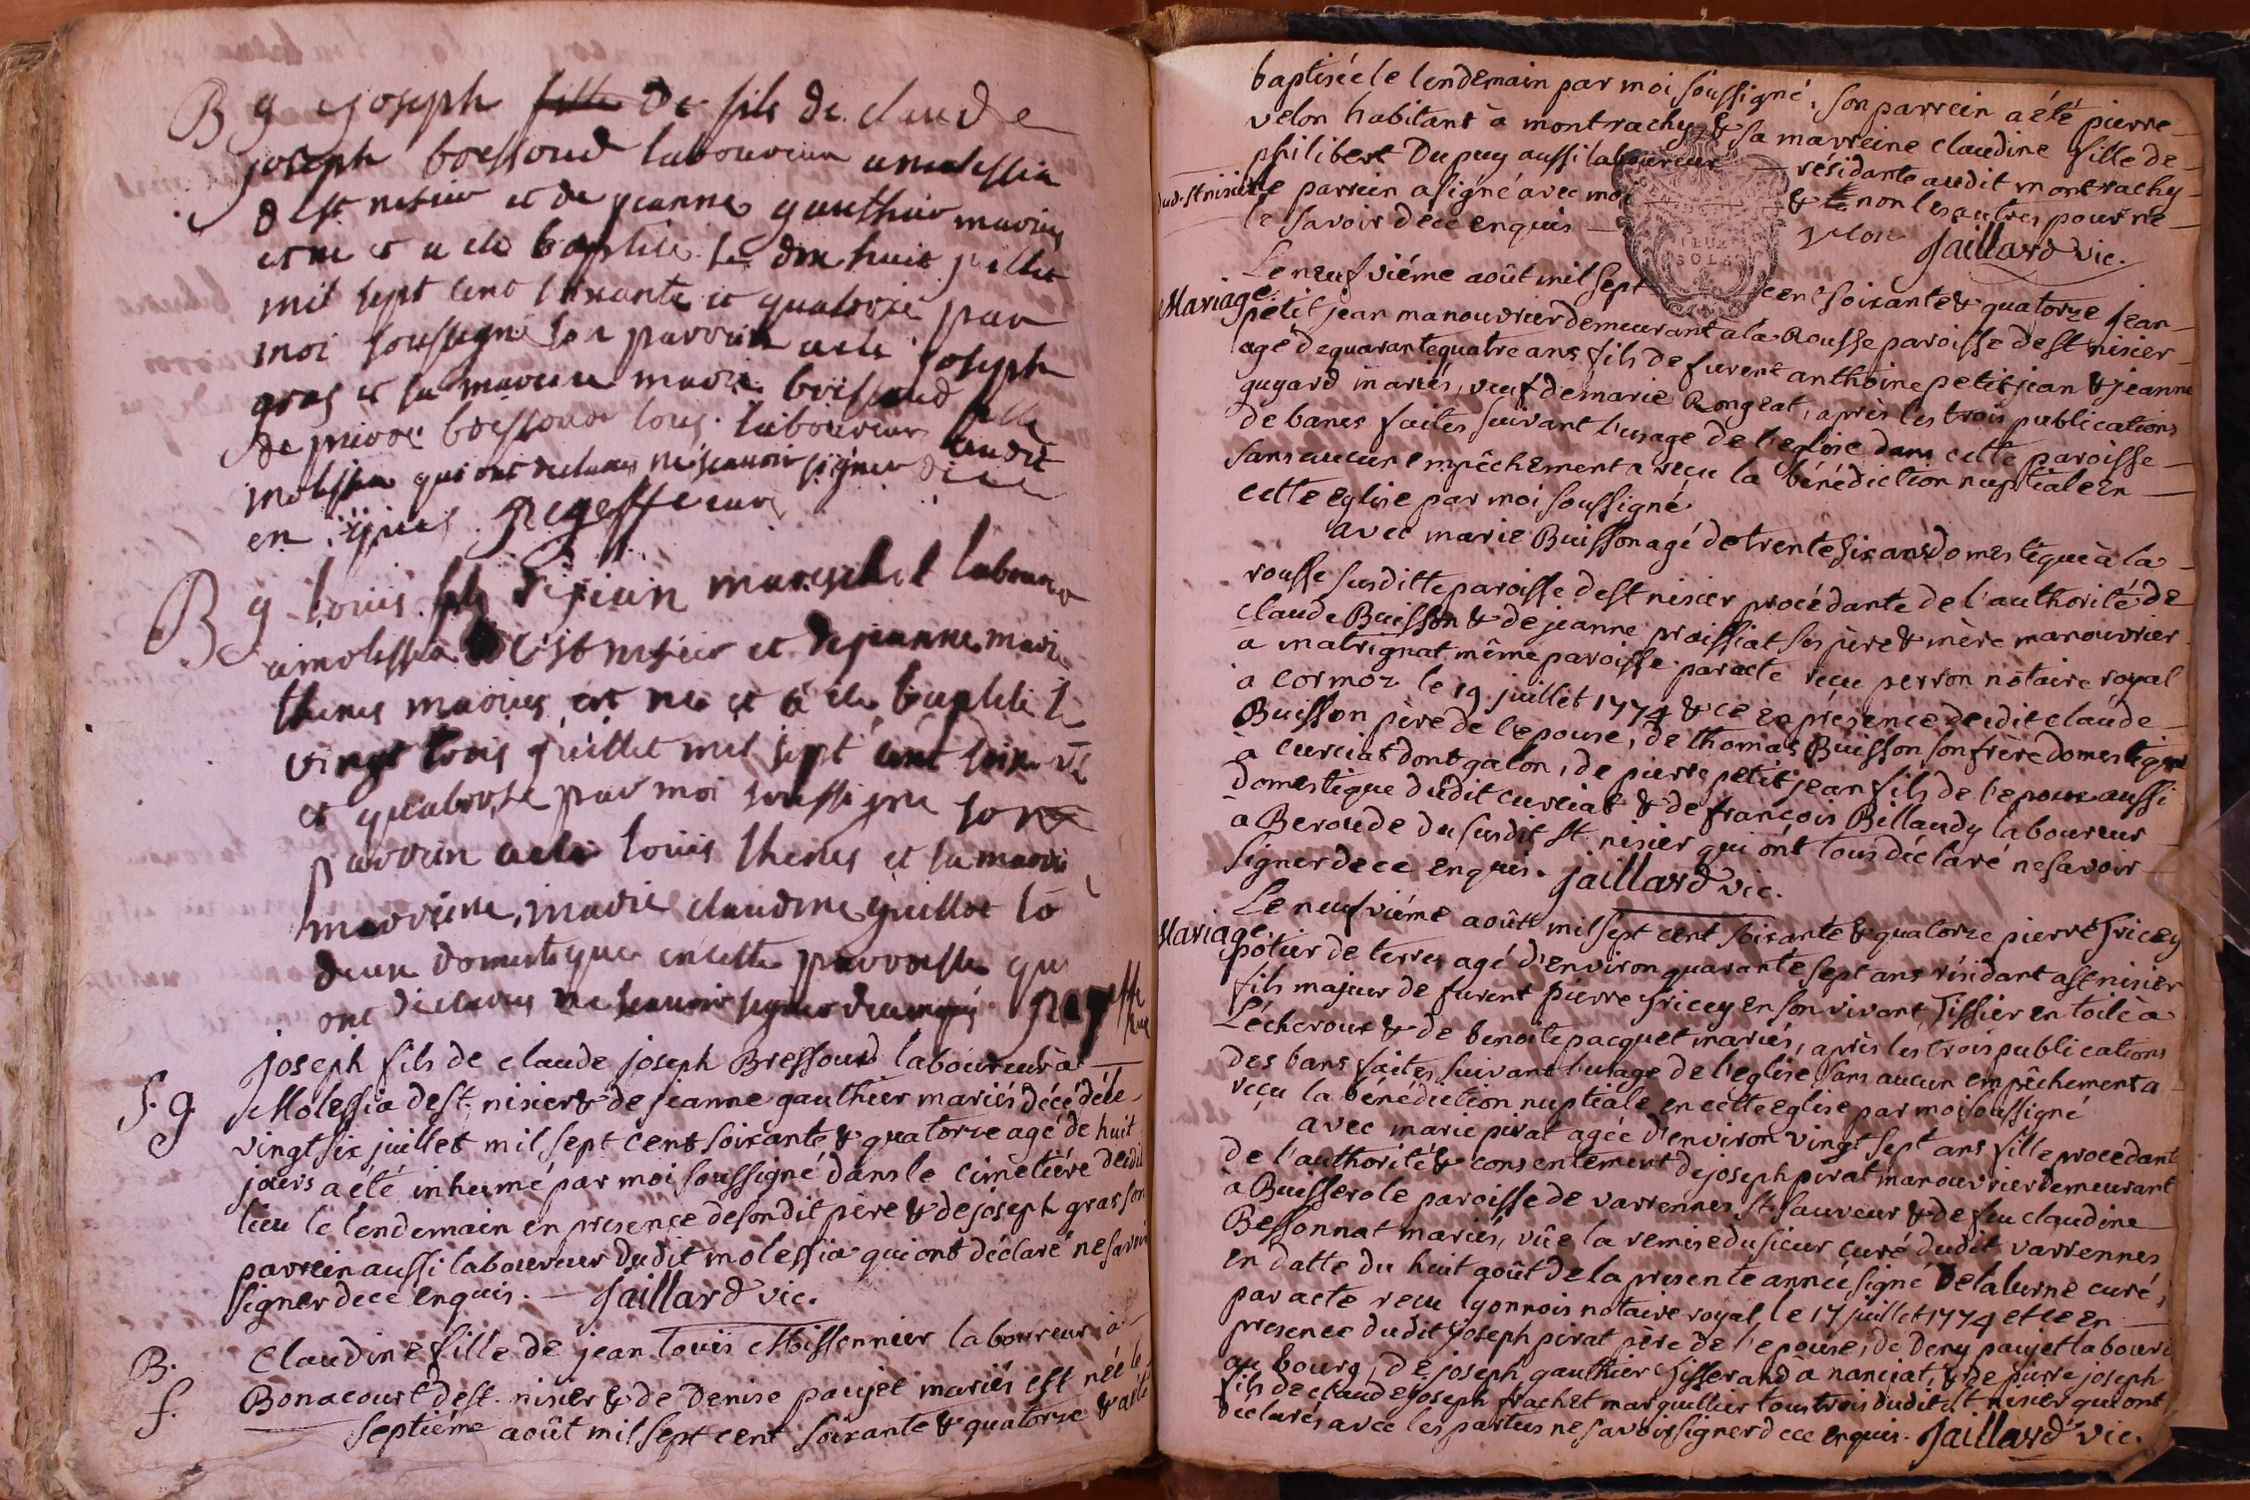 B g joseph fille De fils de claude
joseph boessoud laboureur a molissia
d st nisier et de jeanne gauthier maries
est ne et a ete baptise le dix huit jullet
mil sept cent soixante et quatorze par
moi soussigné son parrain a ete joseph
gras et sa mareine marie boissoud fille
de pierre boessoud tous laboureurs audit
molissia qui ont declares ne scavoir signer de ce
en quis
B g Louis fils de jean mareschal laboureur
a molissia de st nisier et de jeanne marie
thenes maries est ne et a ete baptise le
vingt trois juillet mil sept cent soixante
et quatorze par moi soussigne son
parrein a ete louis thenes et sa marei
marreine, marie claudine guillot to
deux domestique en cette parroisse qui
ont declares ne scavoir signer de ce enquis
joseph fils de claude joseph Bressoud laboureur à
S. g. Molessia de st. nisier & de jeanne gauthier mariés décédé le
vingt six juillet mil sept cent soixante & quatorze agé de huit
jours a été inhumé par moi soussigné dans le cimetière dudit
lieu le lendemain en presence de sondit père & de joseph gras son
parrein aussi laboureur dudit molessia qui ont déclaré ne savoir
signer de ce enquis. Jaillard vic.
B. Claudine fille de jean louis Missonnier laboureur à
f. Bonacourt de st. nisier & de Denise paujet mariés est née le
septiéme août mil sept cent soixante & quatorze & a été
baptisée le lendemain par moi soussigné, son parrein a été pierre
velon habitant à montrachy & sa marreine claudine fille de
philibert Dupuy aussi laboureur résidante audit montrachy
dud. st nisier le parrein a signé avec moi & non les autres pour ne
le savoir de ce enquis velon Jaillard vic.
Le neufviéme août mil sept cent soixante & quatorze jean
Mariage. petit jean manouvrier demeurant à la Rousse paroisse de st nisier
agé de quarante quatre ans fils de furent anthoine petitjean & jeanne
guyard mariés, veuf de marie Rongeat, après les trois publications
de bancs faites suivant l'usage de l'eglise dans cette paroisse
sans aucun empêchement a reçu la bénédiction nuptiale en
cette eglise par moi soussigné
avec marie Buisson agé de trente six ans domestique à la
rousse susditte paroisse de st nisier procédante de l'authorité de
claude Buisson & de jeanne praissiat ses père & mère manouvrier
a matrignat même paroisse par acte reçu perron notaire royal
à cormoz le 19 juillet 1774 & ce en présence dudit claude
Buisson père de l'epouse, de thomas Buisson son frère domestique
à curciat dontgalon, de pierre petitjean fils de l'epoux aussi
domestique dudit curciat & de françois Billaudy laboureur
a Beroude du susdit st. nisier qui ont tous déclaré ne savoir
signer de ce enquis. Jaillard vic.
Le neufviéme août mil sept cent soixante & quatorze pierre Fricey
Mariage. potier de terres agé d'environ quarante sept ans résidant a st nisier
fils majeur de furent pierre Fricey en son vivant Tissier en toile à
L'écheroux & de benoite pacquet mariés, après les trois publications
des bans faites suivant l'usage de l'eglise sans aucun empêchement a
reçu la bénédiction nuptiale en cette eglise par moi soussigné
avec marie pirat agée d'environ vingt sept ans fille procedante
de l'authorité & consentement de joseph pirat manouvrier demeurant
à Buisserole paroisse de varrennes st. sauveur & de feu claudine
Bessonnat mariés, vûe la remise du sieur curé dudit varrennes
en datte du huit août de la presente année signé Delaburne curé,
par acte recu lyonnois notaire royal, le 17 juillet 1774 et ce en
presence dudit joseph pirat père de l'epouse, de Deny paujet laboureur
au bourg, de joseph gauthier Tisserand à nanciat, & de pierre joseph
fils de claude joseph frachet marguillier tous trois dudit st nisier qui ont
declarés avec les parties ne savoir signer de ce enquis. Jaillard vic.